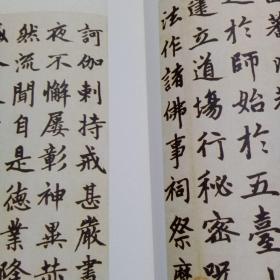 之於師始於五臺
建立道場行秘密呪
法作諸佛事祠祭摩
訶伽剌持戒甚嚴晝
夜不懈屢彰神異赫
然流聞自是德業隆